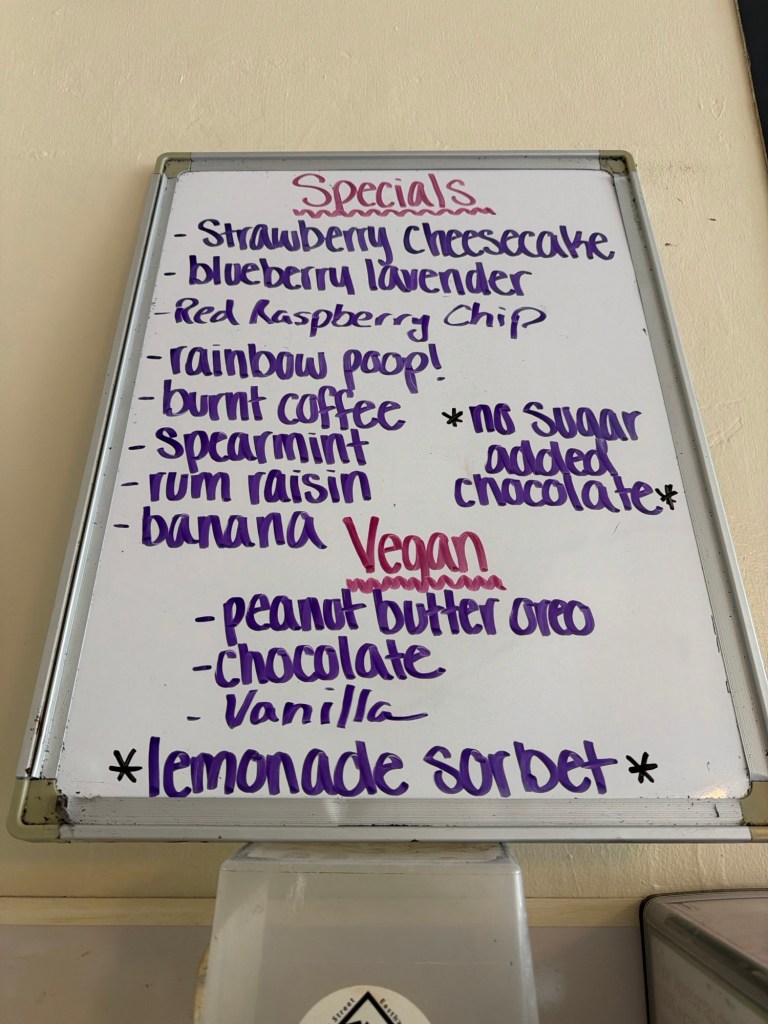 Specials
- Strawberry Cheesecake
- blueberry lavender
- Red Raspberry Chip
- rainbow poop!
- burnt coffee
- Spearmint
- rum raisin
- banana
*no Sugar
added
chocolate*
Vegan
- peanut butter oreo
- chocolate
- Vanilla
*lemonade sorbet*
Street